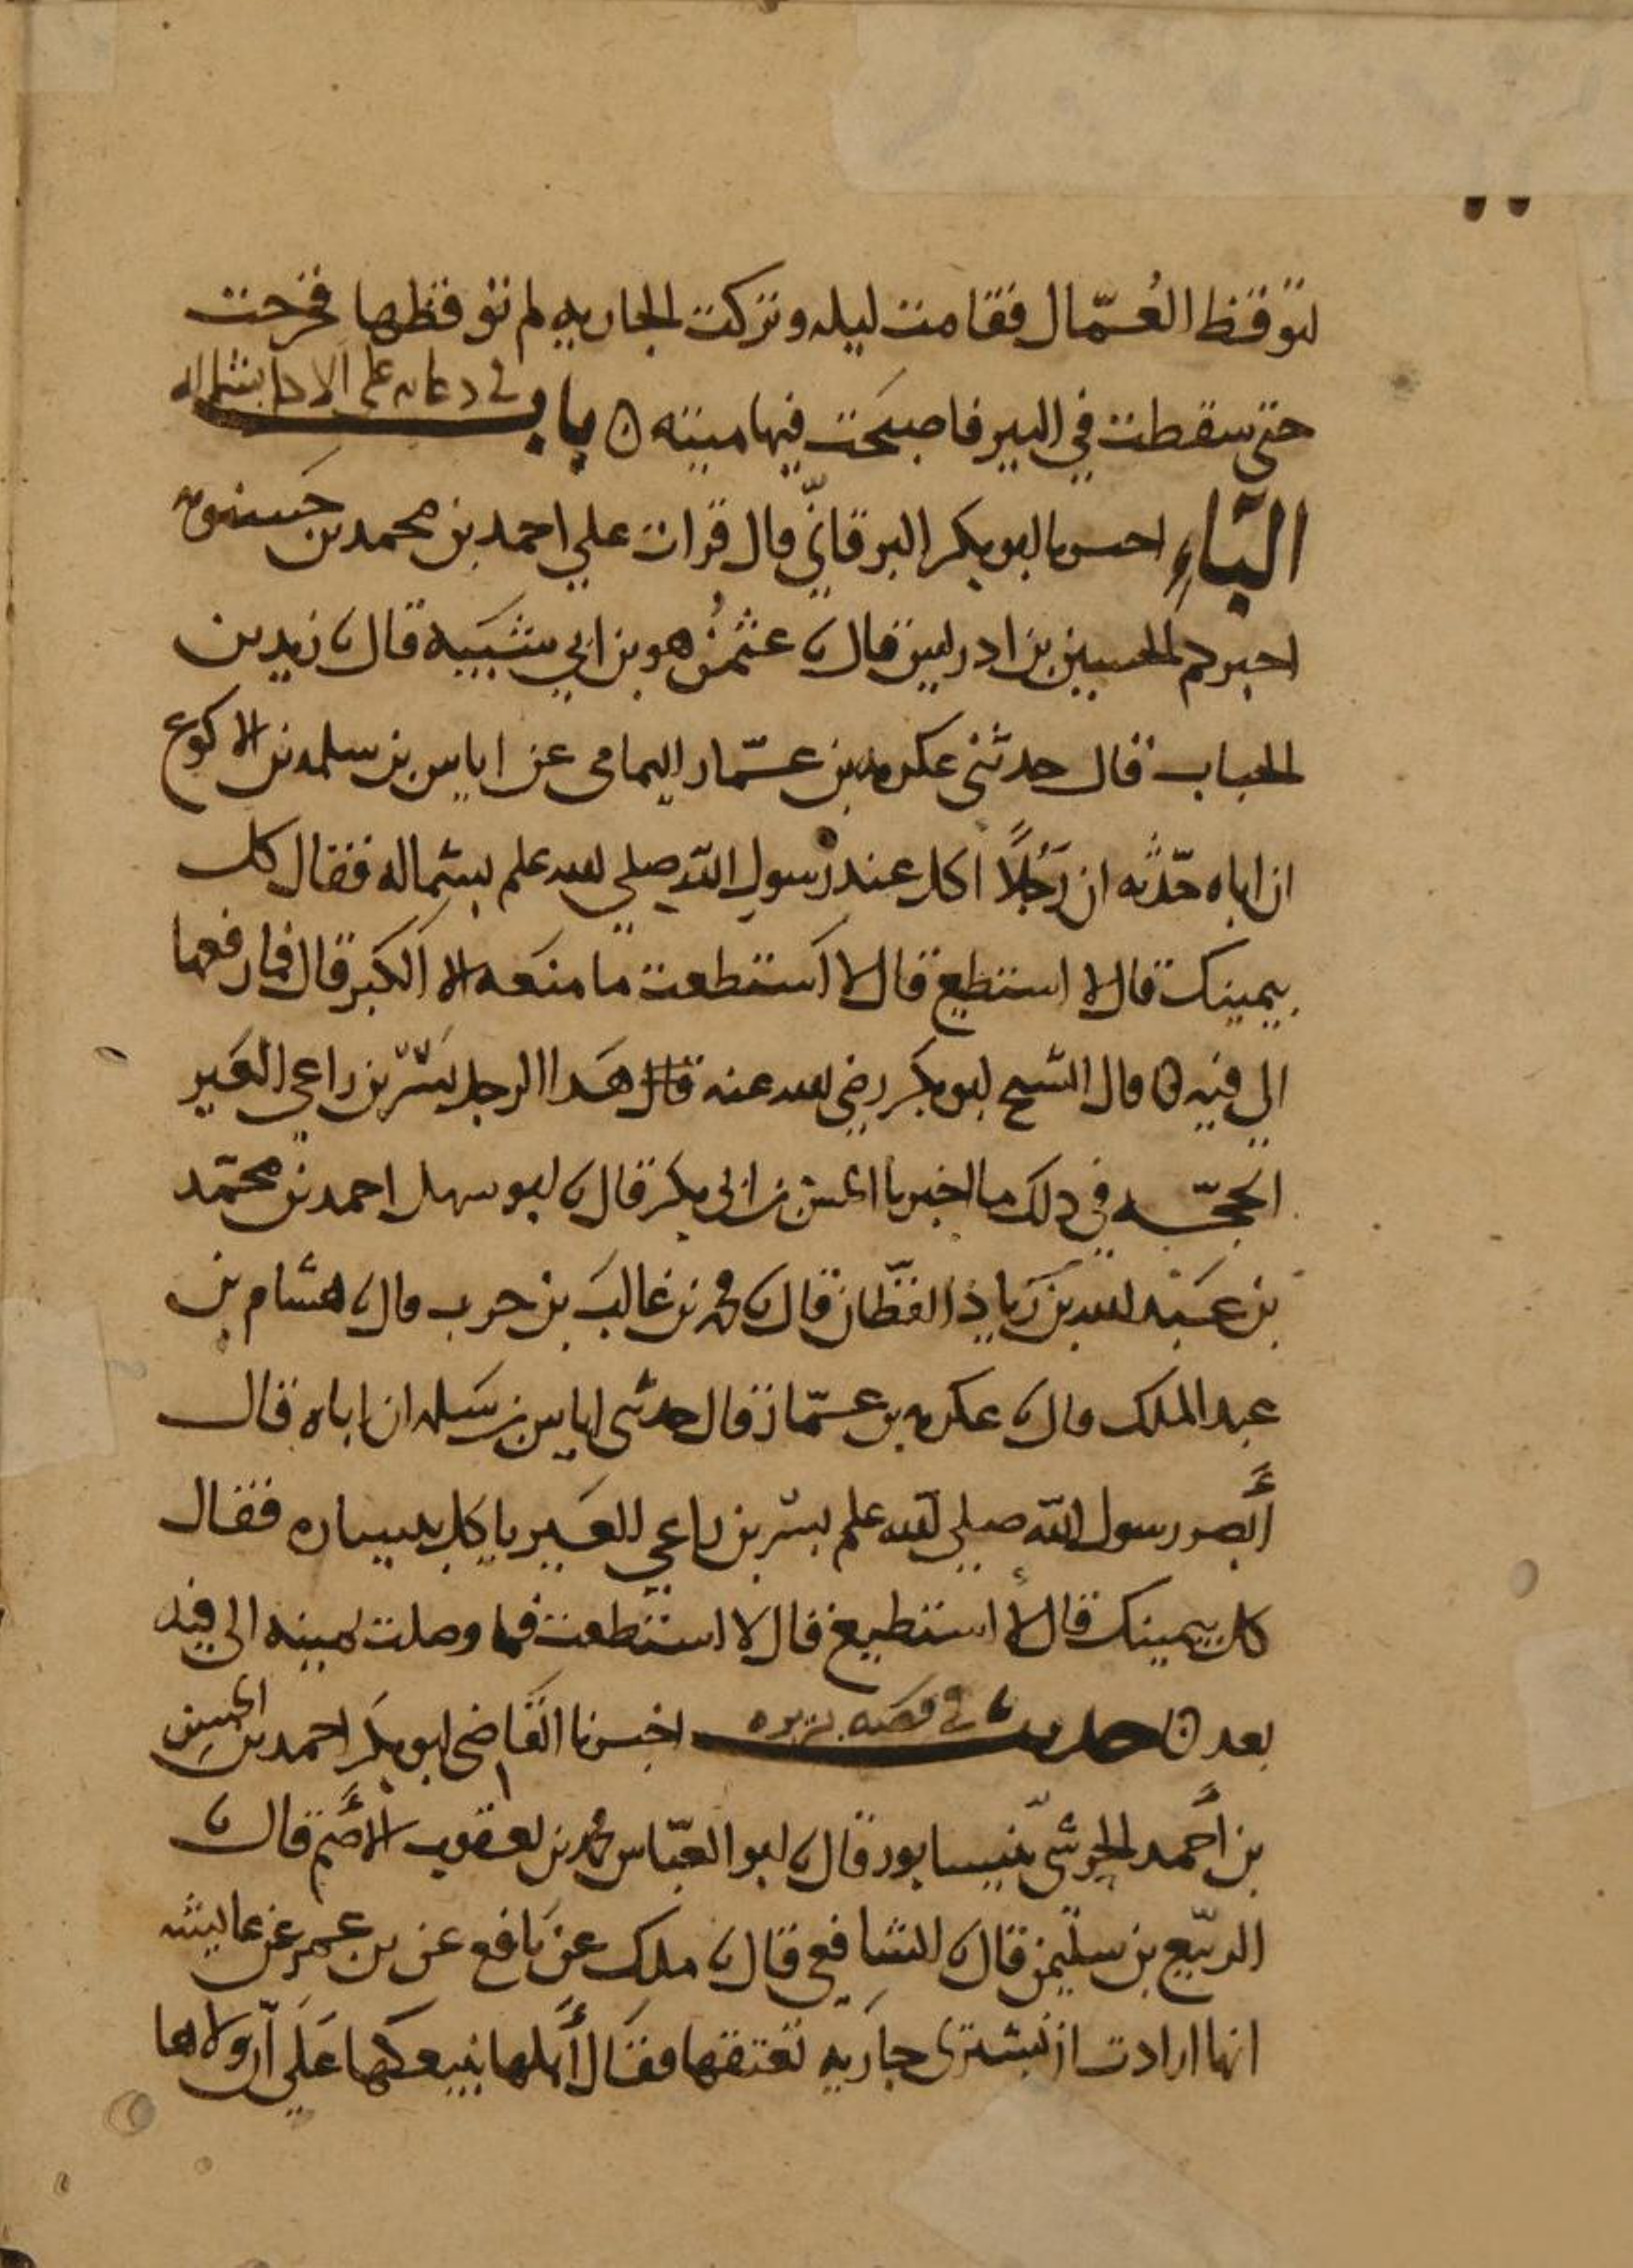 لتوقظ العُمّال فقامت ليله وتركت الجاريه لم توقظها فخرجت
حتى سقطت في البير فاصبحت فيها ميته ه باب في دعايه على الاكل بشماله
البَاءِ اخبرنا ابو بكر البرقانيّ قال قرات علي احمد بن محمد بن حسنويه
اخبركم الحسين بن ادريس قال نا عثمٰن هو بن ابي شيبه قال نا زيد بن
الحباب قال حدثني عكرمه بن عمّار اليمامي عن اياس بن سلمه بن الاكوع
ان اباه حدّثه ان رَجُلاً اكل عند رسول الله صلي الله عليه وسلم بشماله فقال كل
بيمينك قال لا استطيع قال لا استطعت ما منعه الا الكبر قال فما رفعها
الي فيه ه قال الشيخ ابو بكر رضي الله عنه هذا الرجل بسر بن راعي العير
الحجّه في ذلك ما اخبرنا الحسن بن ابي بكر قال نا ابو سهل احمد بن محمّد
بن عبد الله بن زياد القطّان قال نا محمد بن غالب بن حرب قال نا هشام بن
عبد الملك قال نا عكرمه بن عمّار قال حدثني اياس بن سلمه ان اباه قال
أبصر رسول الله صلي الله عليه وسلم بسر بن راعي العير ياكل بيساره فقال
كل بيمينك قال لا استطيع قال لا استطعت فما وصلت يمينه الي فيه
بعد ه حديث في قصه بريره اخبرنا القاضي ابو بكر احمد بن الحسن
بن أحمد الحرشي بنيسابور قال نا ابو العبّاس محمد بن يعقوب الأصم قال نا
الربيع بن سليمٰن قال نا الشافعي قال نا ملك عن نافع عن بن عمر عن عايشه
انها ارادت ان تشتري جاريه تعتقها فقال أهلها نبيعكها علي أن ولاها